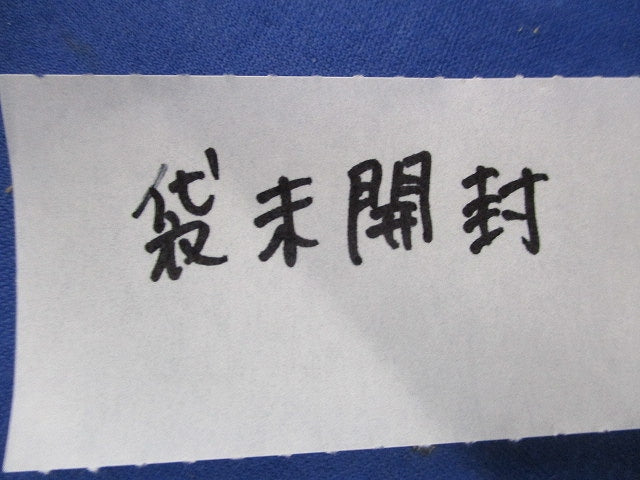 袋未開封